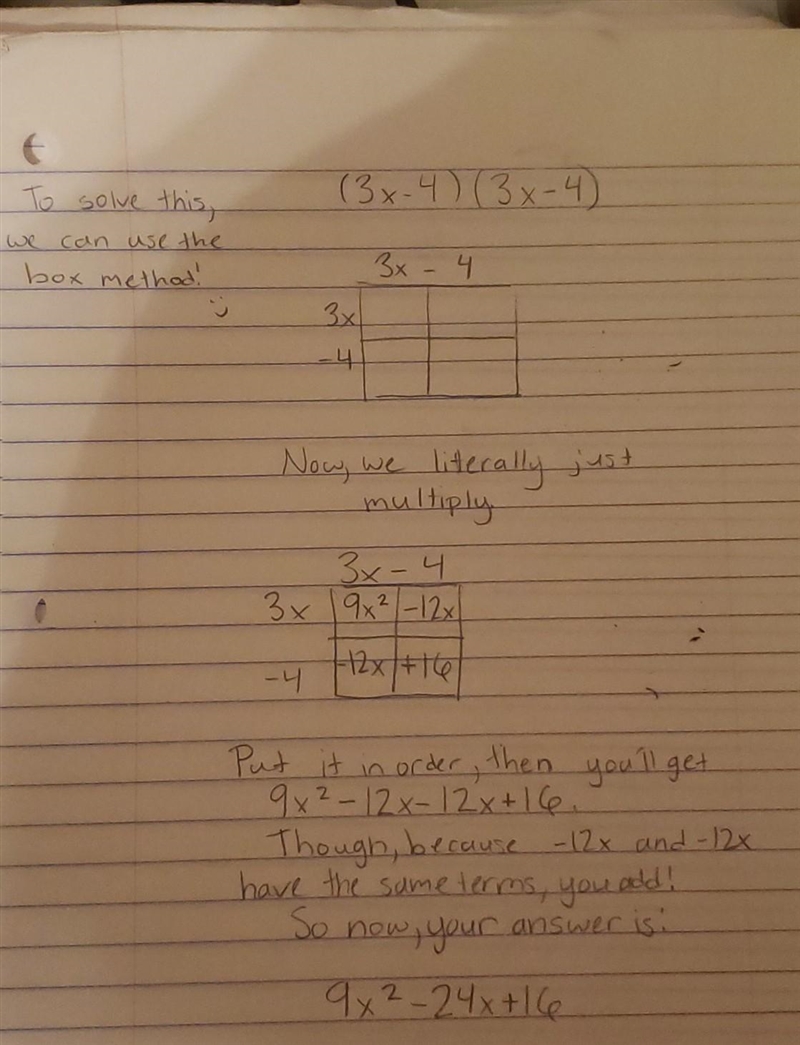 To solve this,
(3x-4)(3x-4)
we can use the
box method!
3x - 4
3x
-4
Now, we literally just
multiply
3x - 4
3x 9x² -12x
-4 -12x +16
Put it in order, then you'll get
9x²-12x-12x+16.
Though, because -12x and -12x
have the same terms, you add!
So now, your answer is:
9x²-24x+16